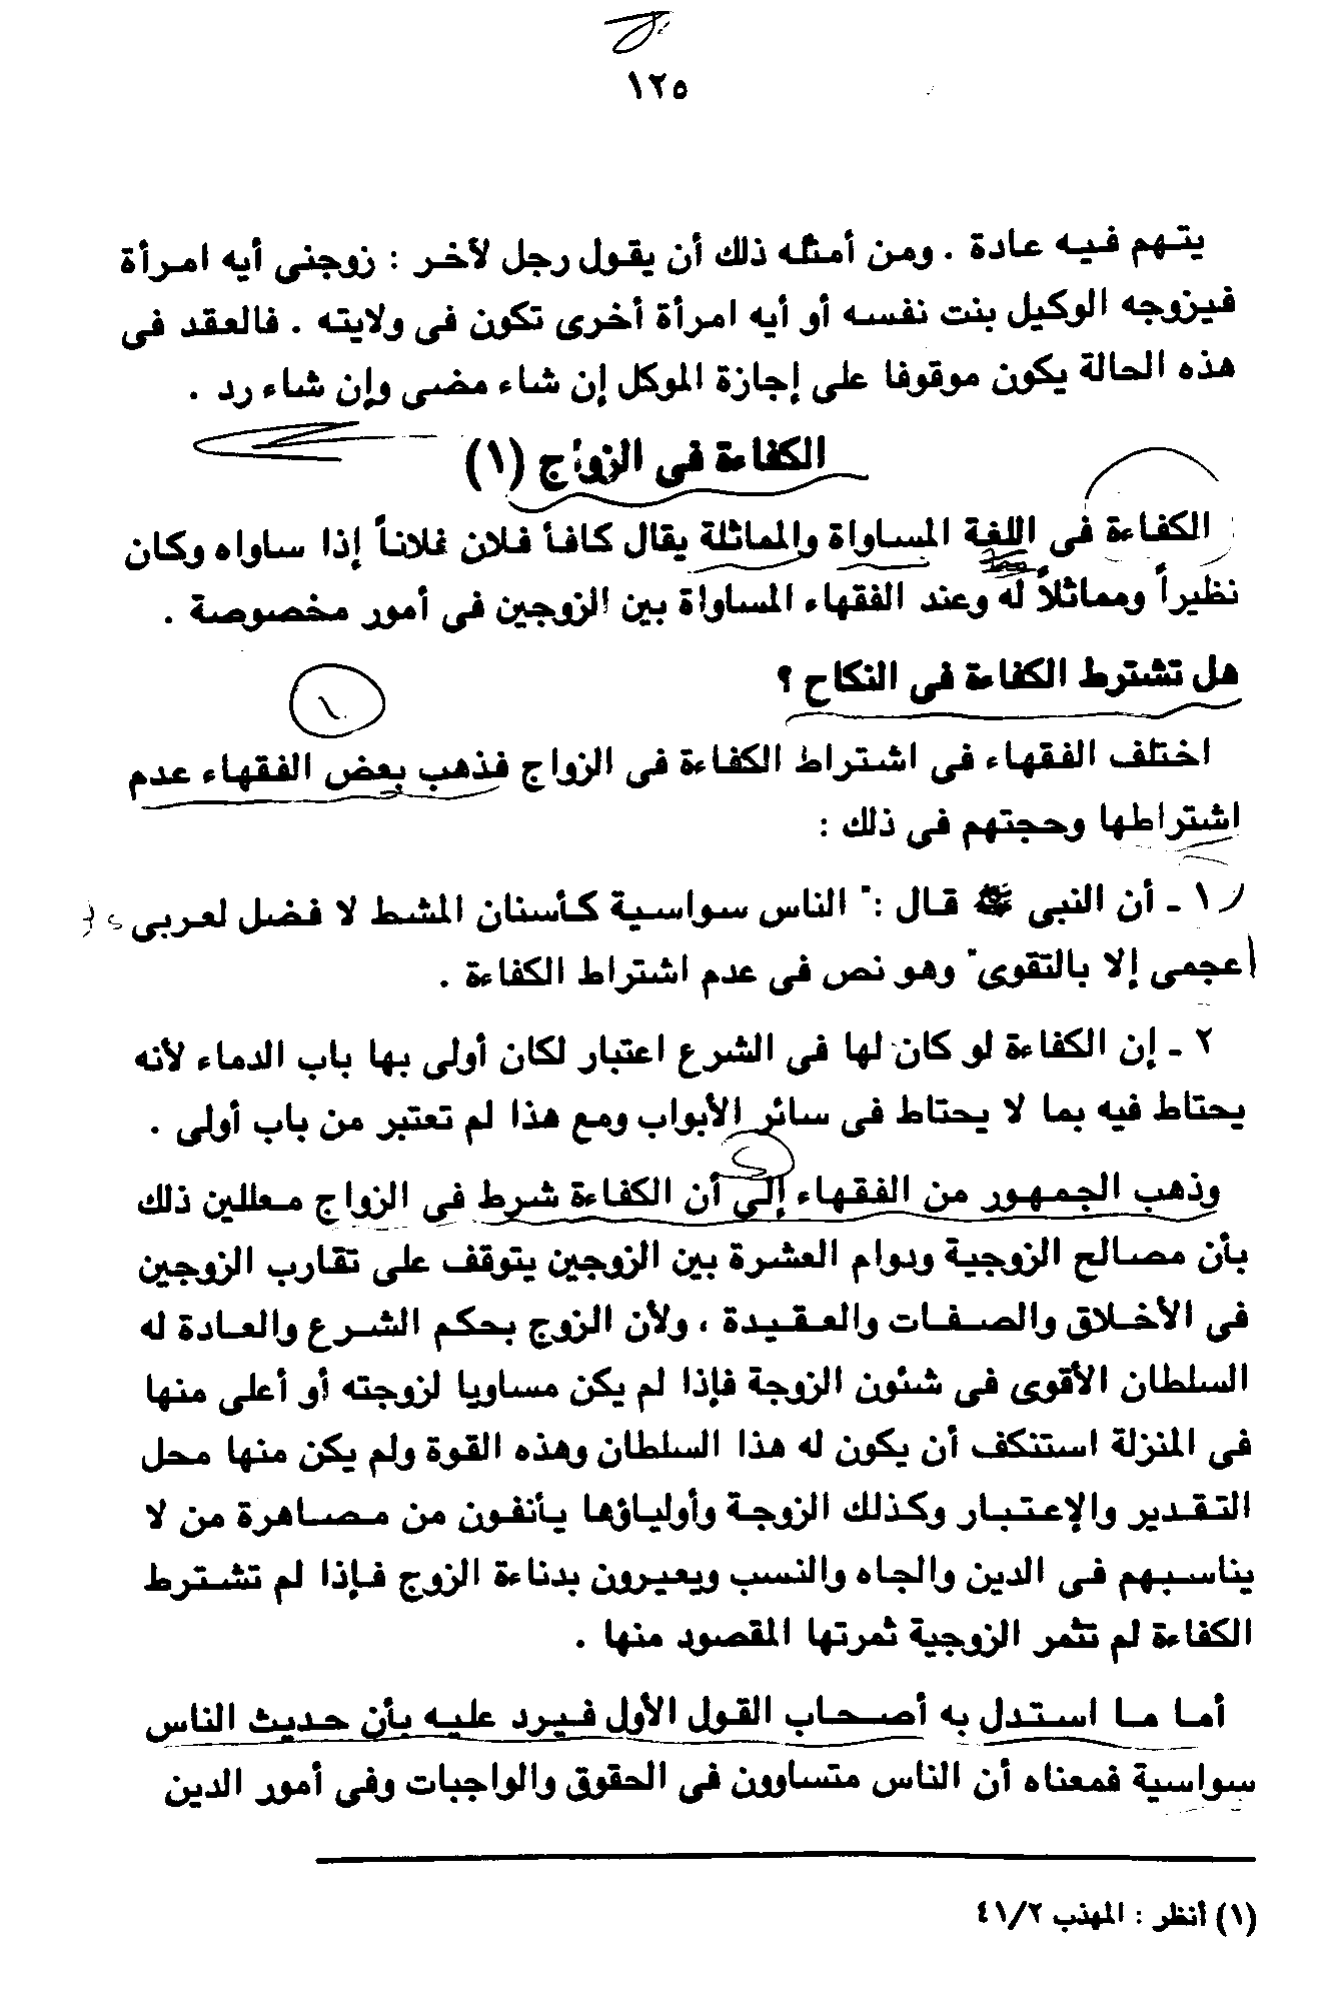 ١٢٥
يتهم فيه عادة . ومن أمثله ذلك أن يقول رجل لآخر : زوجنى أيه امرأة
فيزوجه الوكيل بنت نفسه أو أيه امرأة أخرى تكون فى ولايته . فالعقد فى
هذه الحالة يكون موقوفا على إجازة الموكل إن شاء مضى وإن شاء رد .
الكفاءة فى الزواج (١)
الكفاءة فى اللغة المساواة والمماثلة يقال كافأ فلان فلاناً إذا ساواه وكان
نظيراً ومماثلاً له وعند الفقهاء المساواة بين الزوجين فى أمور مخصوصة .
هل تشترط الكفاءة فى النكاح ؟
١
اختلف الفقهاء فى اشتراط الكفاءة فى الزواج فذهب بعض الفقهاء عدم
اشتراطها وحجتهم فى ذلك :
١ ـ أن النبى ﷺ قال : " الناس سواسية كأسنان المشط لا فضل لعربى
أعجمى إلا بالتقوى" وهو نص فى عدم اشتراط الكفاءة .
٢ ـ إن الكفاءة لو كان لها فى الشرع اعتبار لكان أولى بها باب الدماء لأنه
يحتاط فيه بما لا يحتاط فى سائر الأبواب ومع هذا لم تعتبر من باب أولى .
وذهب الجمهور من الفقهاء إلى أن الكفاءة شرط فى الزواج معللين ذلك
بأن مصالح الزوجية ودوام العشرة بين الزوجين يتوقف على تقارب الزوجين
فى الأخلاق والصفات والعقيدة ، ولأن الزوج بحكم الشرع والعادة له
السلطان الأقوى فى شئون الزوجة فإذا لم يكن مساويا لزوجته أو أعلى منها
فى المنزلة استنكف أن يكون له هذا السلطان وهذه القوة ولم يكن منها محل
التقدير والإعتبار وكذلك الزوجة وأولياؤها يأنفون من مصاهرة من لا
يناسبهم فى الدين والجاه والنسب ويعيرون بدناءة الزوج فإذا لم تشترط
الكفاءة لم تثمر الزوجية ثمرتها المقصود منها .
أما ما استدل به أصحاب القول الأول فيرد عليه بأن حديث الناس
سواسية فمعناه أن الناس متساوون فى الحقوق والواجبات وفى أمور الدين
(١) أنظر : المهذب ٤١/٢